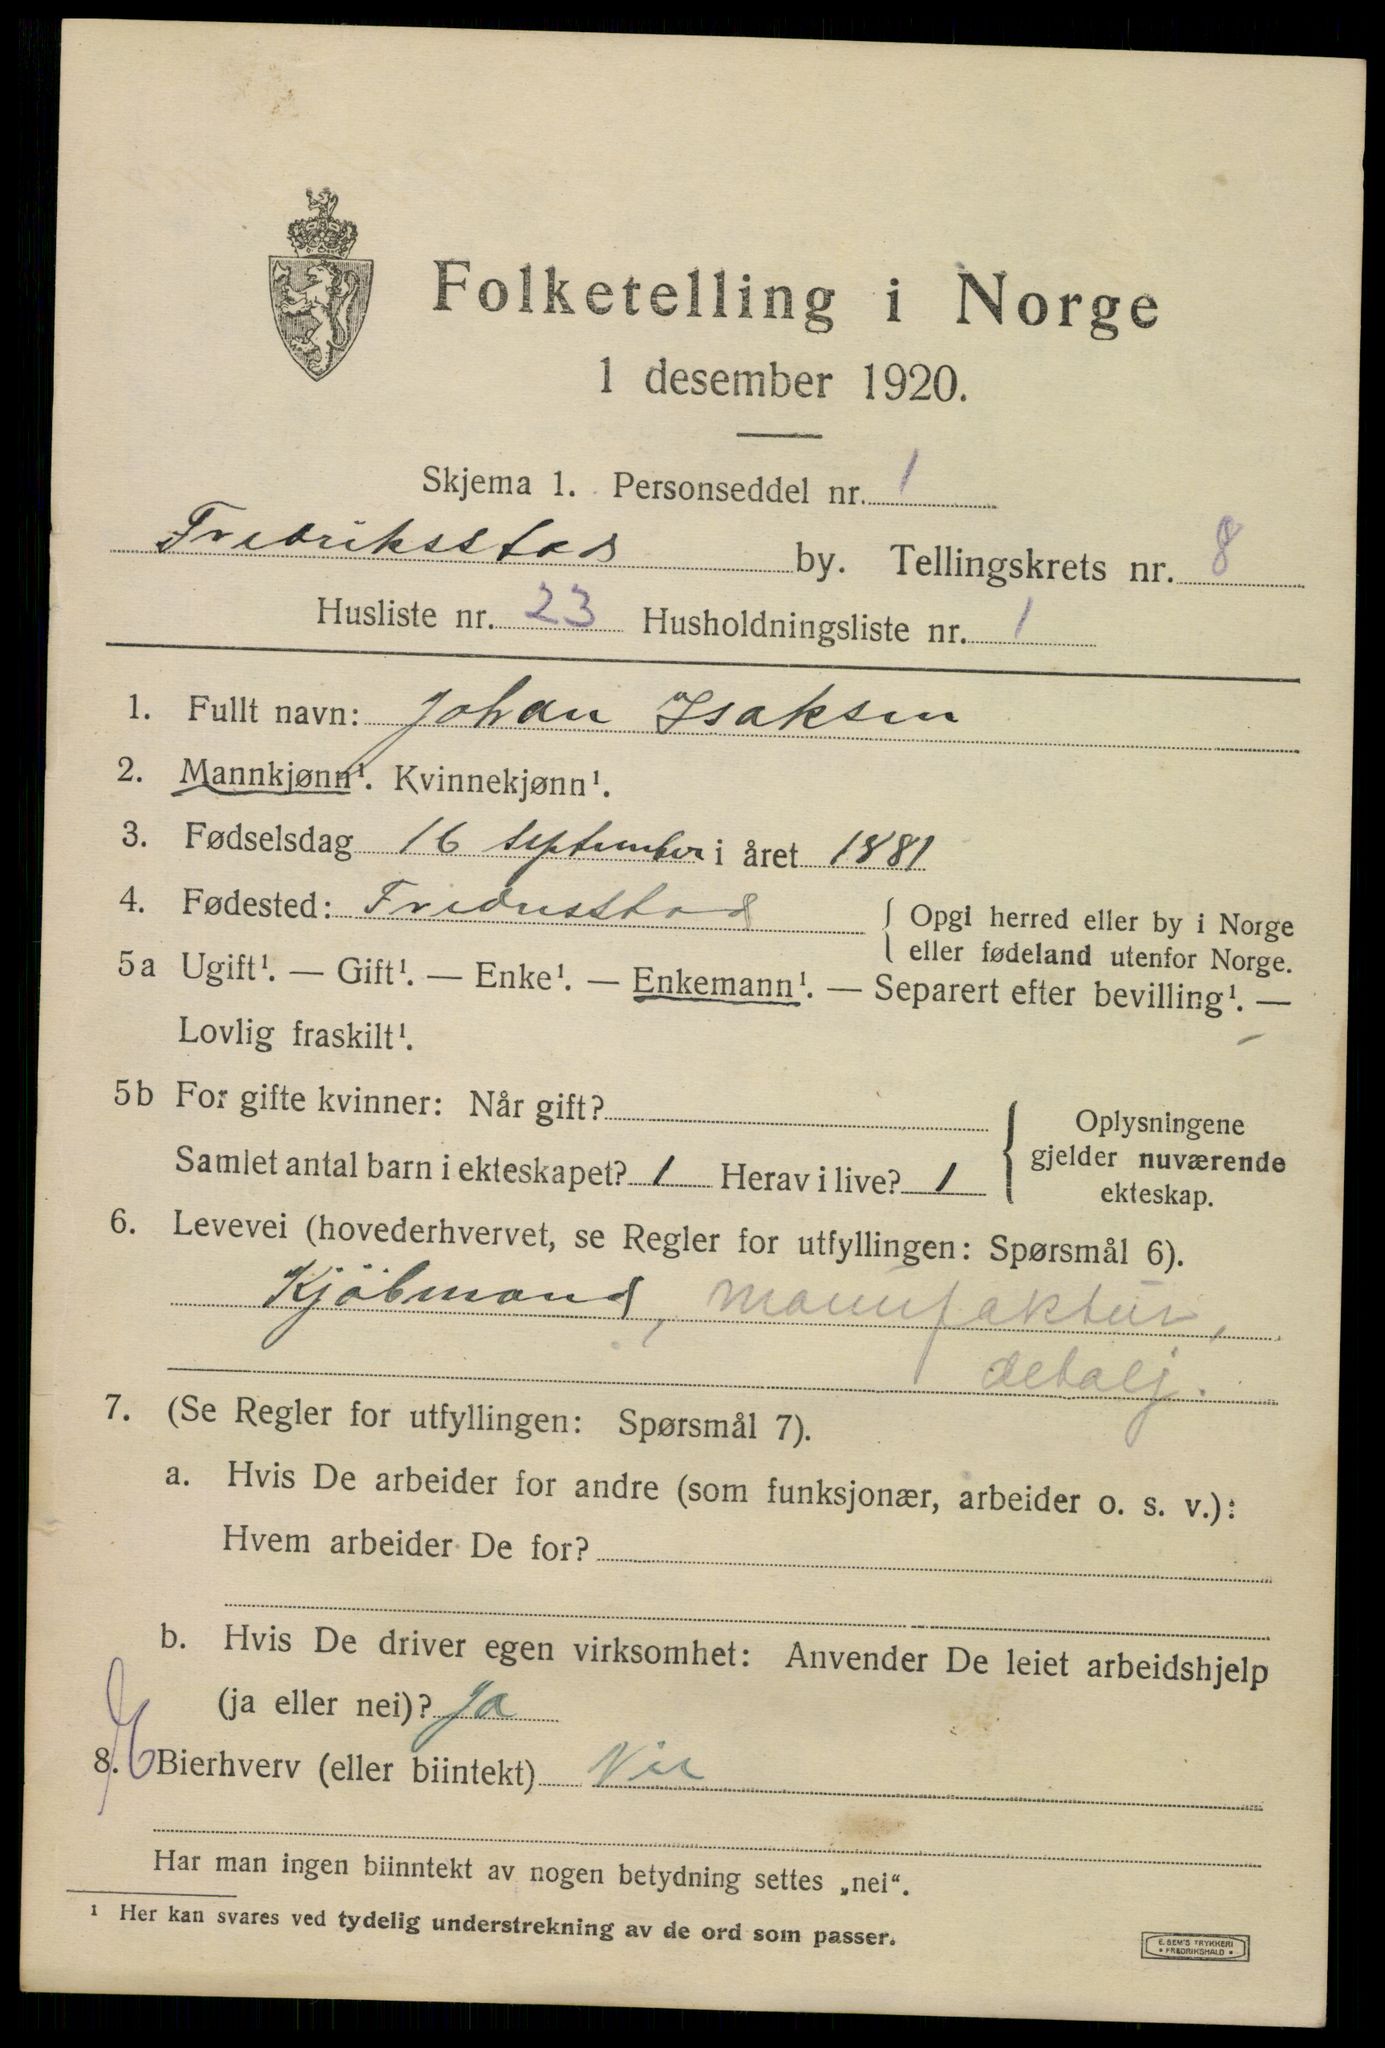 Folketelling i Norge
1 desember 1920.
Skjema 1. Personseddel nr. 1
Fredriksstad by. Tellingskrets nr. 8
Husliste nr. 23 Husholdningsliste nr. 1
1. Fullt navn: Johan Isaksen
2. Mannkjønn¹. Kvinnekjønn¹.
3. Fødselsdag 16 september i året 1881
4. Fødested: Fredriksstad { Opgi herred eller by i Norge
eller fødeland utenfor Norge.
5a Ugift¹. — Gift¹. — Enke¹. — Enkemann¹. — Separert efter bevilling¹. —
Lovlig fraskilt¹.
5b For gifte kvinner: Når gift?
Samlet antal barn i ekteskapet? 1 Herav i live? 1
{ Oplysningene
gjelder nuværende
ekteskap.
6. Levevei (hovederhvervet, se Regler for utfyllingen: Spørsmål 6).
Kjöbmand, manufaktur,
detalj.
7. (Se Regler for utfyllingen: Spørsmål 7).
a. Hvis De arbeider for andre (som funksjonær, arbeider o. s. v.):
Hvem arbeider De for?
b. Hvis De driver egen virksomhet: Anvender De leiet arbeidshjelp
(ja eller nei)? Ja
8. Bierhverv (eller biintekt) Nei
Har man ingen biinntekt av nogen betydning settes „nei“.
¹ Her kan svares ved tydelig understrekning av de ord som passer.
E. SEM'S TRYKKERI
• FREDRIKSHALD •